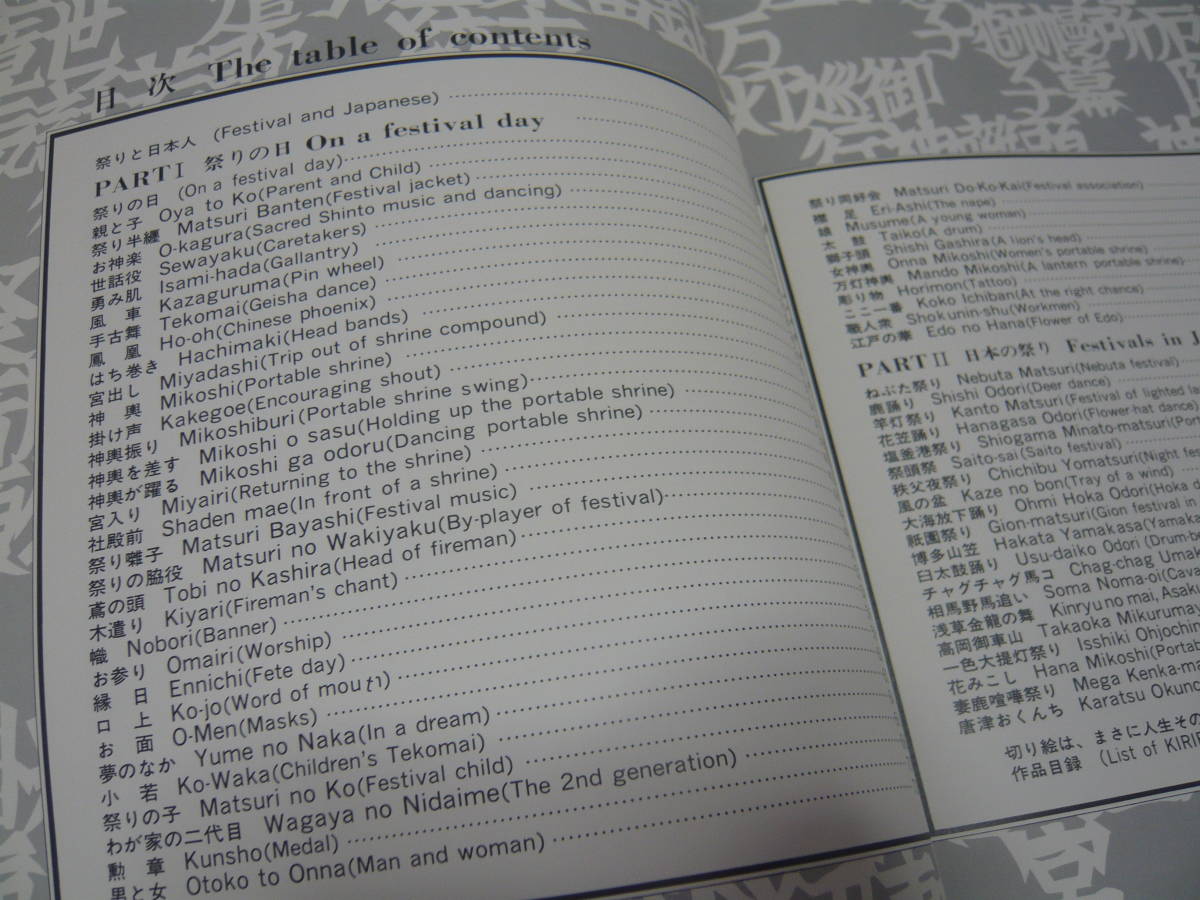 目次 The table of contents
祭りと日本人 (Festival and Japanese)
PART I 祭りの日 On a festival day
祭りの日 (On a festival day)
親と子 Oya to Ko(Parent and Child)
祭り半纏 Matsuri Banten(Festival jacket)
お神楽 O-kagura(Sacred Shinto music and dancing)
世話役 Sewayaku(Caretakers)
勇み肌 Isami-hada(Gallantry)
風車 Kazaguruma(Pin wheel)
手古舞 Tekomai(Geisha dance)
鳳凰 Ho-oh(Chinese phoenix)
はち巻き Hachimaki(Head bands)
宮出し Miyadashi(Trip out of shrine compound)
神輿 Mikoshi(Portable shrine)
掛け声 Kakegoe(Encouraging shout)
神輿振り Mikoshiburi(Portable shrine swing)
神輿を差す Mikoshi o sasu(Holding up the portable shrine)
神輿が躍る Mikoshi ga odoru(Dancing portable shrine)
宮入り Miyairi(Returning to the shrine)
社殿前 Shaden mae(In front of a shrine)
祭り囃子 Matsuri Bayashi(Festival music)
祭りの脇役 Matsuri no Wakiyaku(By-player of festival)
鳶の頭 Tobi no Kashira(Head of fireman)
木遣り Kiyari(Fireman's chant)
幟 Nobori(Banner)
お参り Omairi(Worship)
縁日 Ennichi(Fete day)
口上 Ko-jo(Word of mouth)
お面 O-Men(Masks)
夢のなか Yume no Naka(In a dream)
小若 Ko-Waka(Children's Tekomai)
祭りの子 Matsuri no Ko(Festival child)
わが家の二代目 Wagaya no Nidaime(The 2nd generation)
勲章 Kunsho(Medal)
男と女 Otoko to Onna(Man and woman)
祭り同好会 Matsuri Do-Ko-Kai(Festival association)
襟足 Eri-Ashi(The nape)
娘 Musume(A young woman)
太鼓 Taiko(A drum)
獅子頭 Shishi Gashira(A lion's head)
女神輿 Onna Mikoshi(Women's portable shrine)
万灯神輿 Mando Mikoshi(A lantern portable shrine)
彫り物 Horimon(Tattoo)
ここ一番 Koko Ichiban(At the right chance)
職人衆 Shokunin-shu(Workmen)
江戸の華 Edo no Hana(Flower of Edo)
PART II 日本の祭り Festivals in J
ねぶた祭り Nebuta Matsuri(Nebuta festival)
鹿踊り Shishi Odori(Deer dance)
竿灯祭り Kanto Matsuri(Festival of lighted la
花笠踊り Hanagasa Odori(Flower-hat dance)
塩釜港祭り Shiogama Minato-matsuri(Por
祭頭祭 Saito-sai(Saito festival)
秩父夜祭り Chichibu Yomatsuri(Night fes
風の盆 Kaze no bon(Tray of a wind)
大海放下踊り Ohmi Hoka Odori(Hoka d
祇園祭り Gion-matsuri(Gion festival in
博多山笠 Hakata Yamakasa(Yamaka
臼太鼓踊り Usu-daiko Odori (Drum-be
チャグチャグ馬コ Chag-chag Uma
相馬野馬追い Soma Noma-oi(Cava
浅草金龍の舞 Kinryu no mai, Asak
高岡御車山 Takaoka Mikurumay
一色大提灯祭り Isshiki Ohjochin
花みこし Hana Mikoshi(Portab
妻鹿喧嘩祭り Mega Kenka-m
唐津おくんち Karatsu Okuno
切り絵は、まさに人生その
作品目録 (List of KIRIE